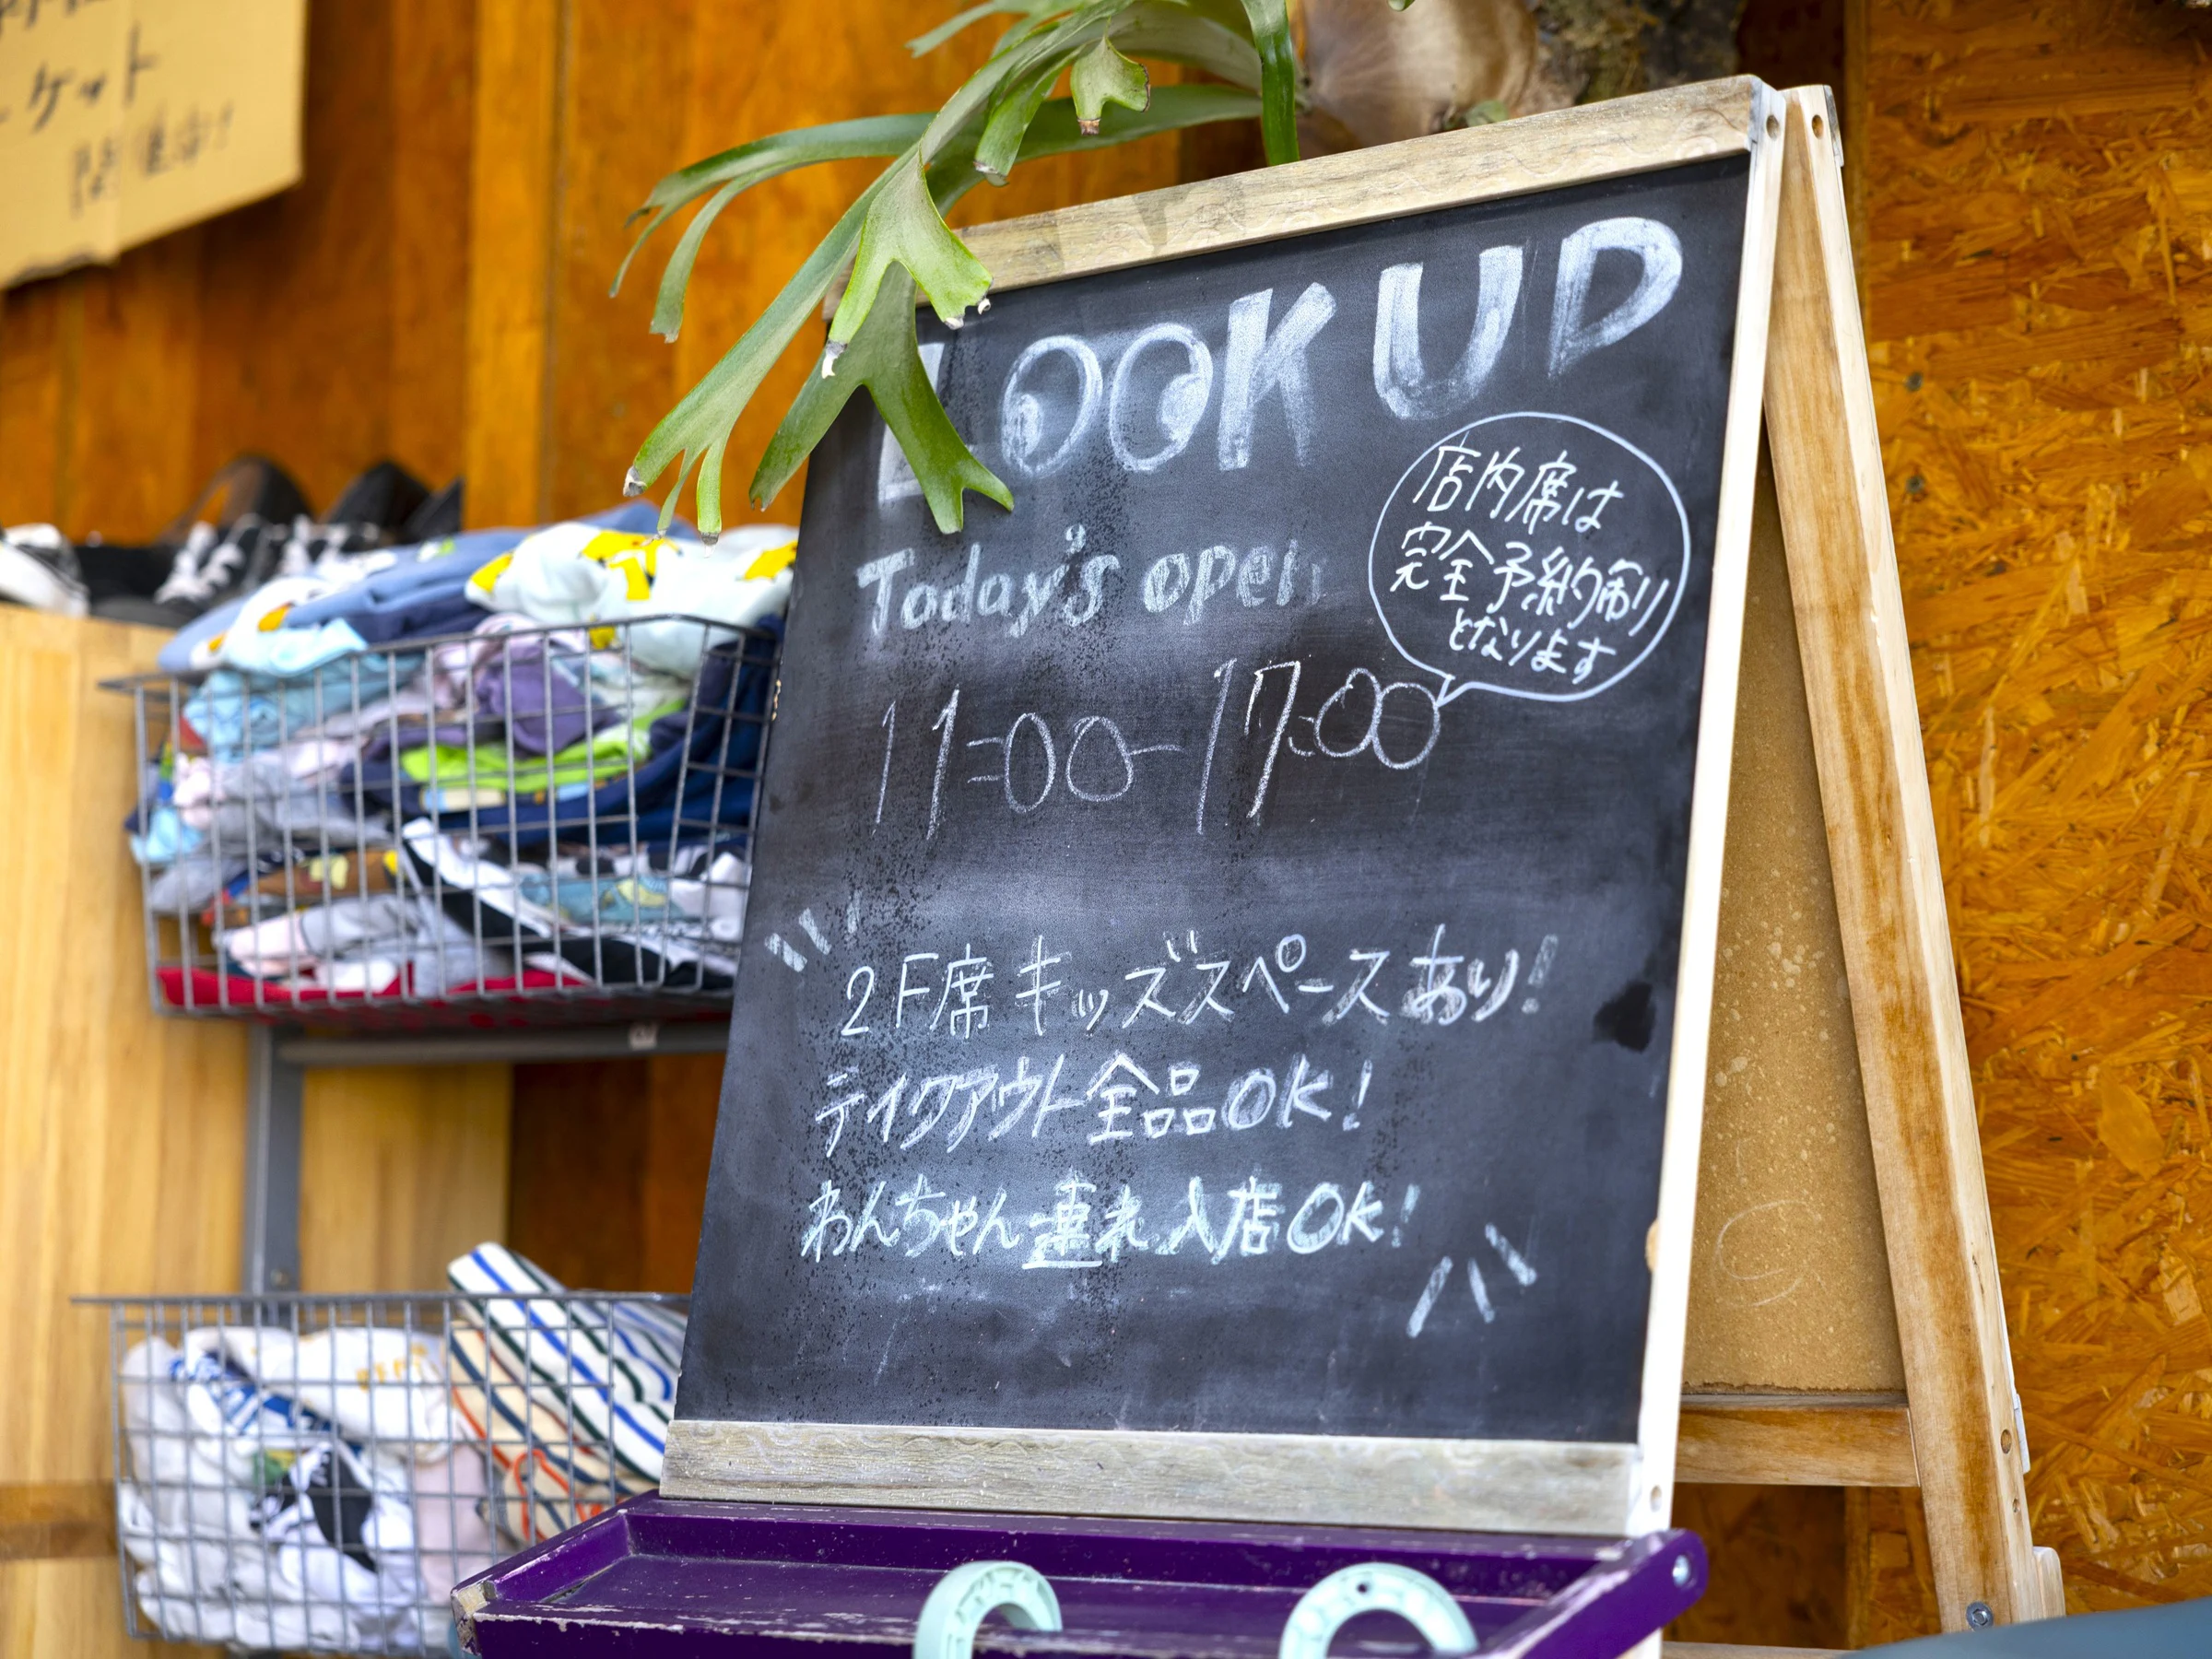 ケット
開催中!
LOOK UP
Today's open
店内席は
完全予約制
となります
11:00-17:00
2F席 キッズスペースあり!
テイクアウト全品OK!
わんちゃん連れ入店OK!